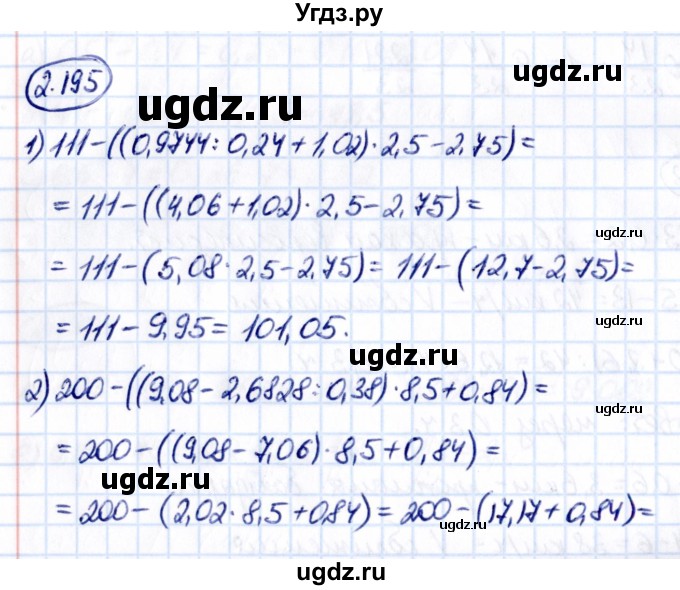 Угдз.ру
2.195
ugdz.ru
1) 111-((0,9744:0,24+1,02)·2,5-2,75)=
ugdz.ru
=111-((4,06+1,02)·2,5-2,75)=
ugdz.ru
=111-(5,08·2,5-2,75)=111-(12,7-2,75)=
=111-9,95=101,05.
ugdz.ru
2) 200-((9,08-2,6828:0,38)·8,5+0,84)=
ugdz.ru
=200-((9,08-7,06)·8,5+0,84)=
ugdz.ru
=200-(2,02·8,5+0,84)=200-(17,17+0,84)=
ugdz.ru
ugdz.ru